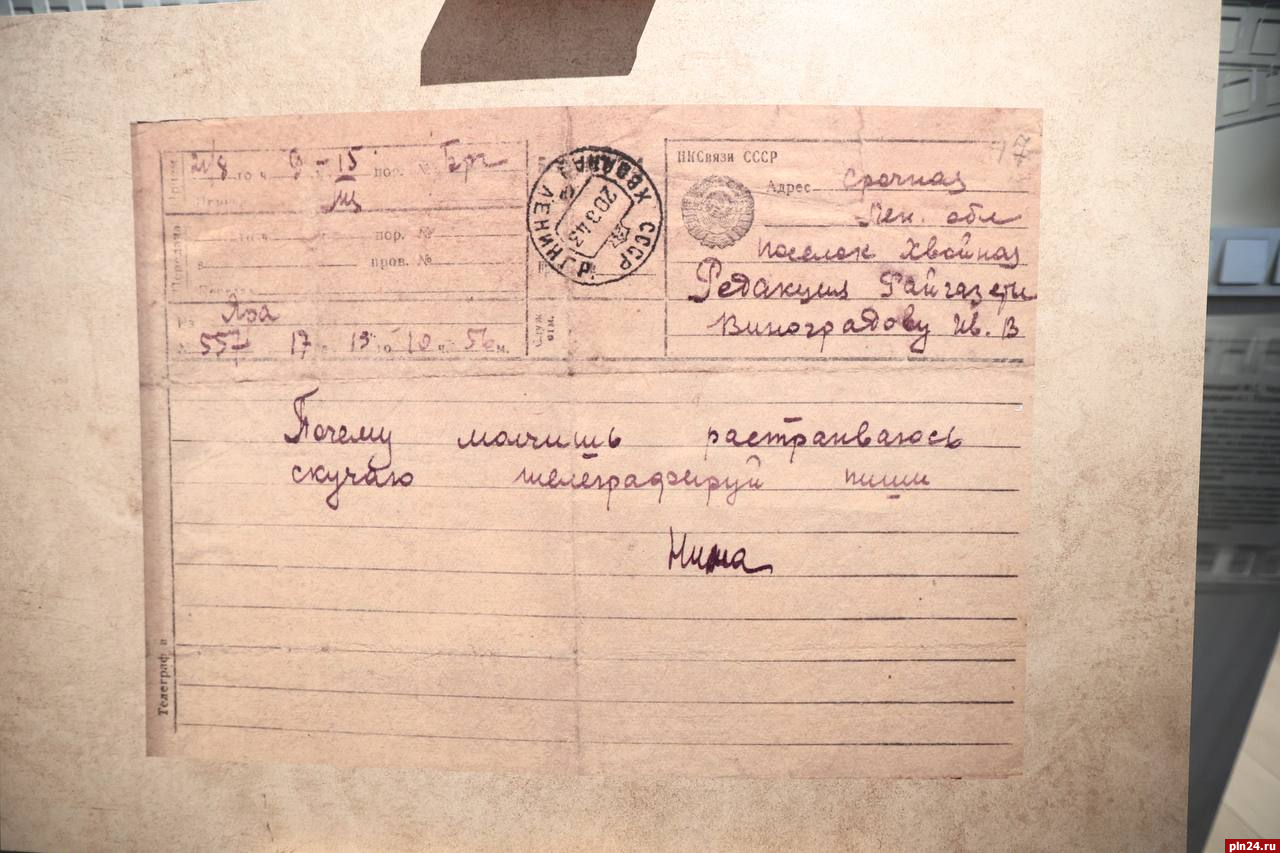 НКСвязи СССР
Адрес Срочная
Лен. обл
поселок Хвойная
Редакция Райгазеты
Виноградову Ив. В
21/8 го ч. 9 15 пор. №
пор. №
пров. №
557 17 го 10 ч. 56 м.
Служ. отм.
СССР ХВОЙНАЯ ЛЕНИНГР.
20 3 43
Почему молчишь растраиваюсь
скучаю телеграфируй пиши
Нина
Телеграф. в
pln24.ru